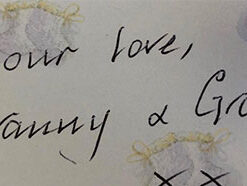 our love,
anny & Gra
x x